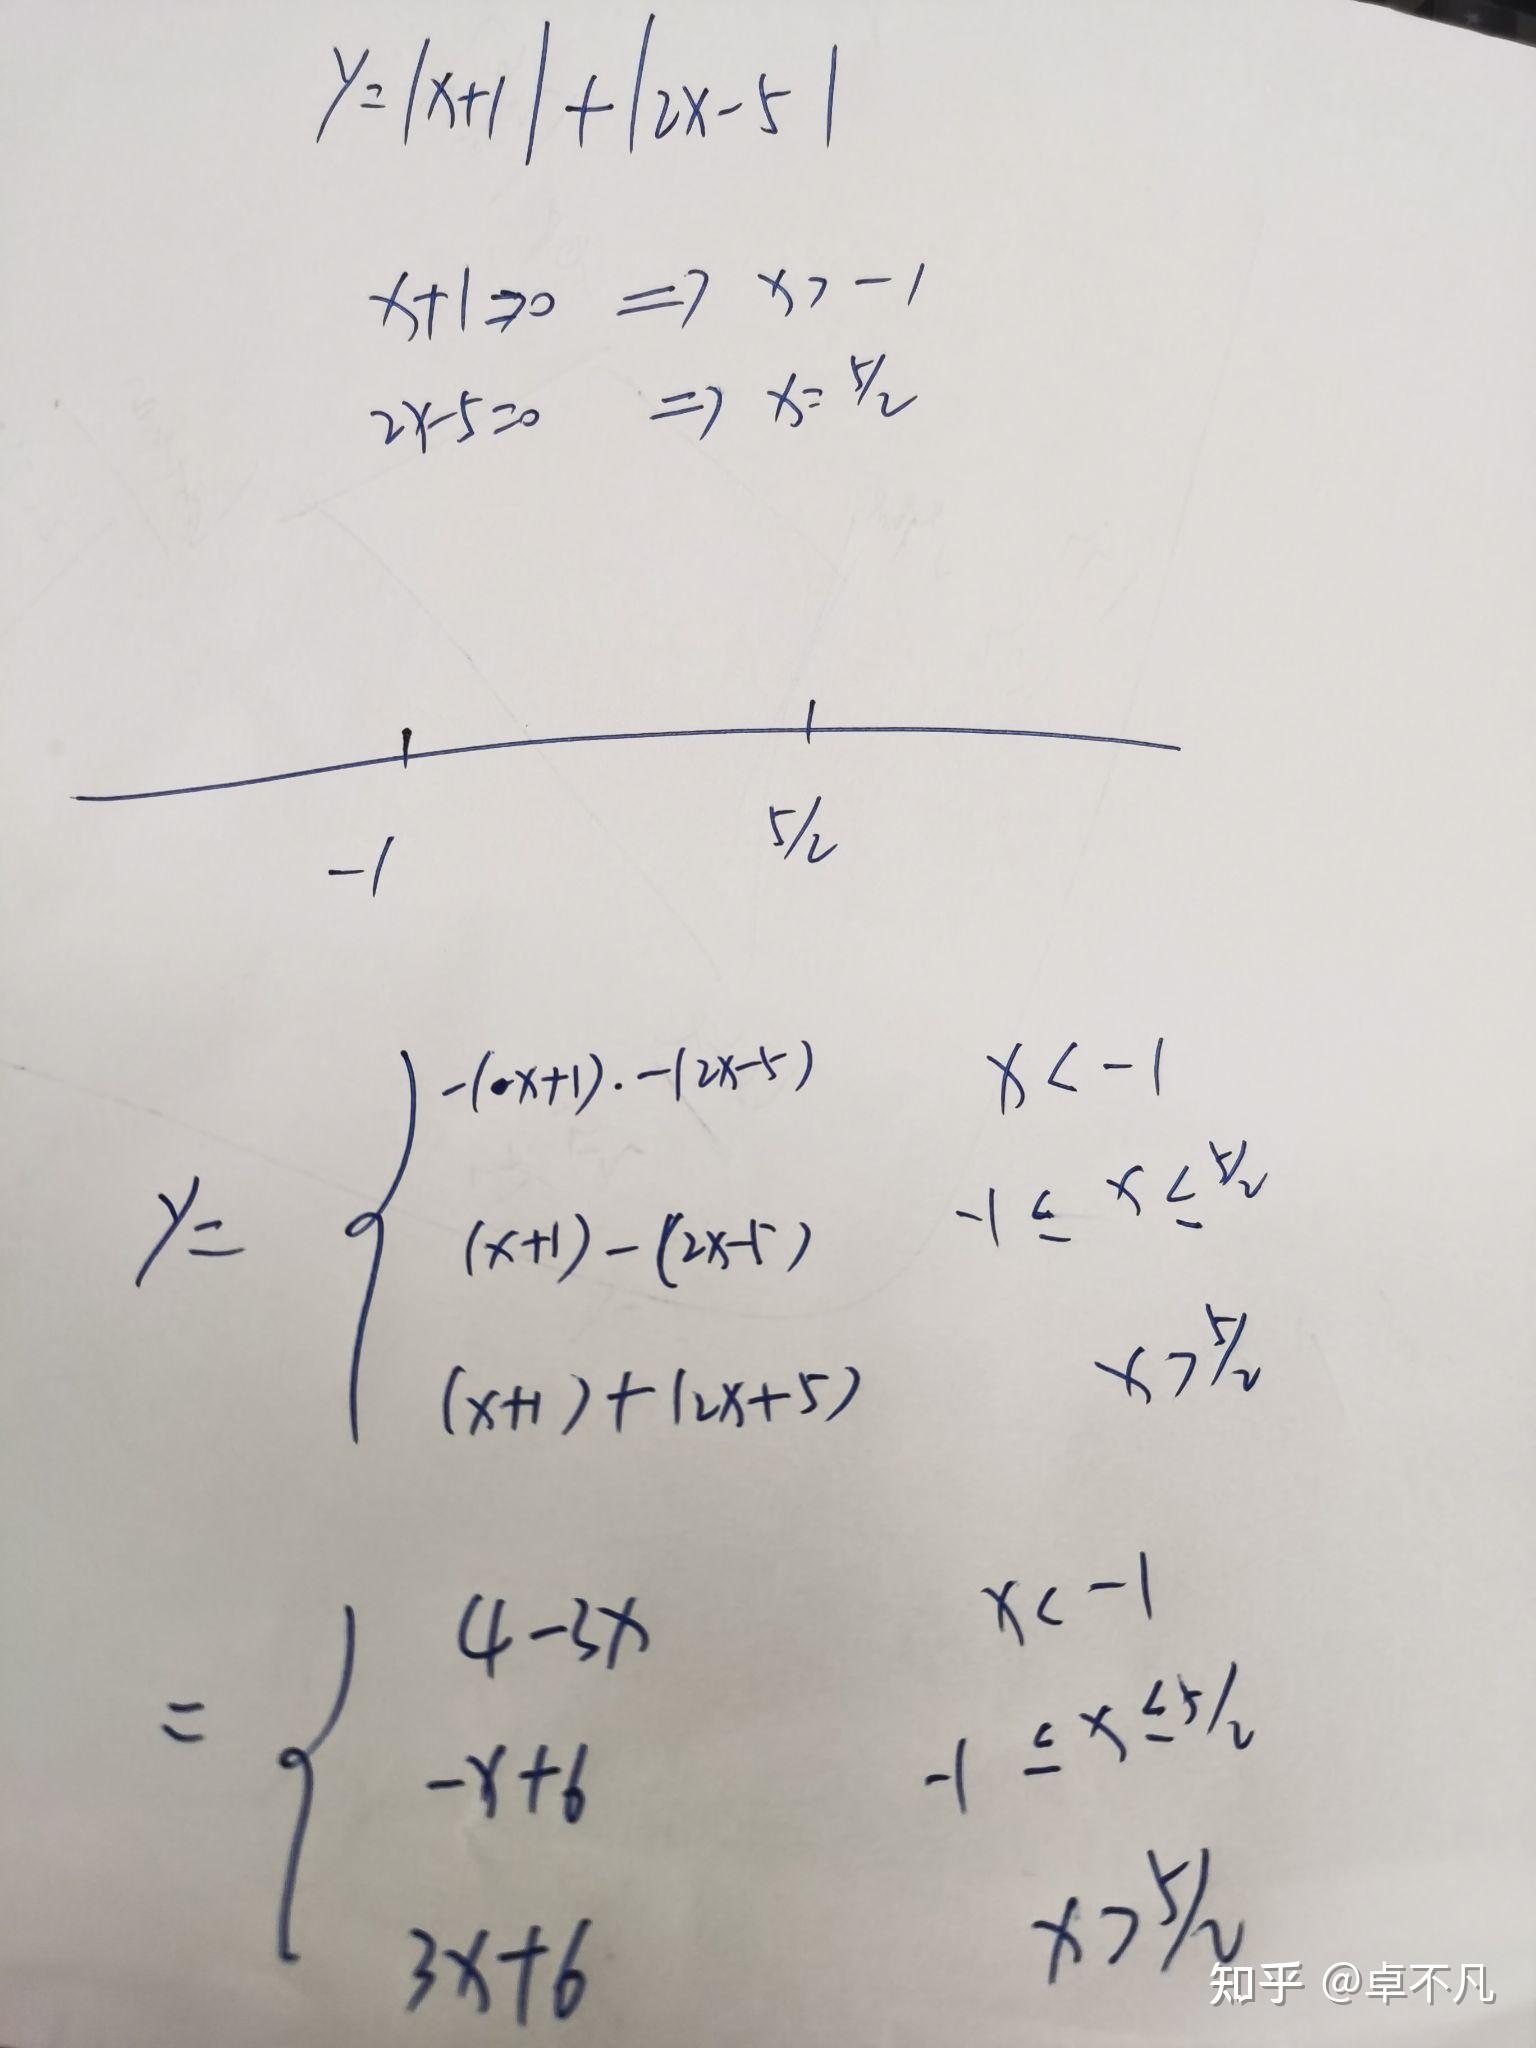 y=|x+1|+|2x-5|
x+1=>0 => x> -1
2x-5=0 => x= 5/2
-1 5/2
-(x+1).-(2x-5) x < -1
y= (x+1)-(2x-5) -1 ≤ x ≤ 5/2
(x+1)+(2x+5) x > 5/2
4-3x x < -1
= -x+6 -1 ≤ x ≤ 5/2
3x+6 x > 5/2
知乎 @卓不凡